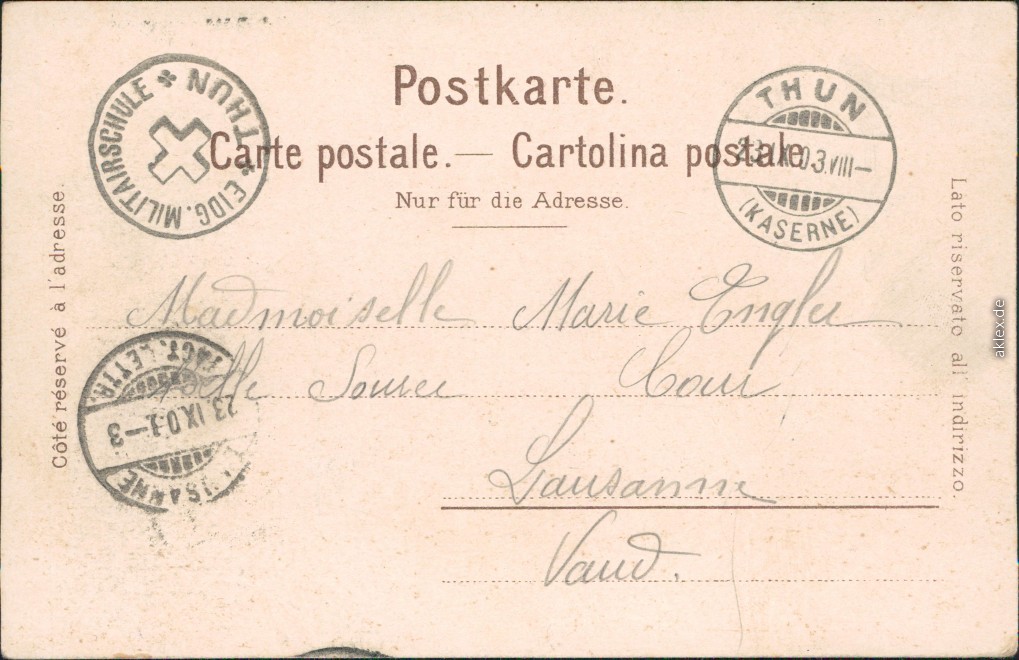 Postkarte.
Carte postale. — Cartolina postale.
Nur für die Adresse.
Côté réservé à l'adresse.
Lato riservato all' indirizzo.
THUN ✻ EIDG. MILITAIRSCHULE ✻
THUN
23 IX 03. VIII—
(KASERNE)
Madmoiselle Marie Engler
Belle Source Cour
Lausanne
Vaud.
LAUSANNE
23 IX 0 —3
LETTR.
aklex.de